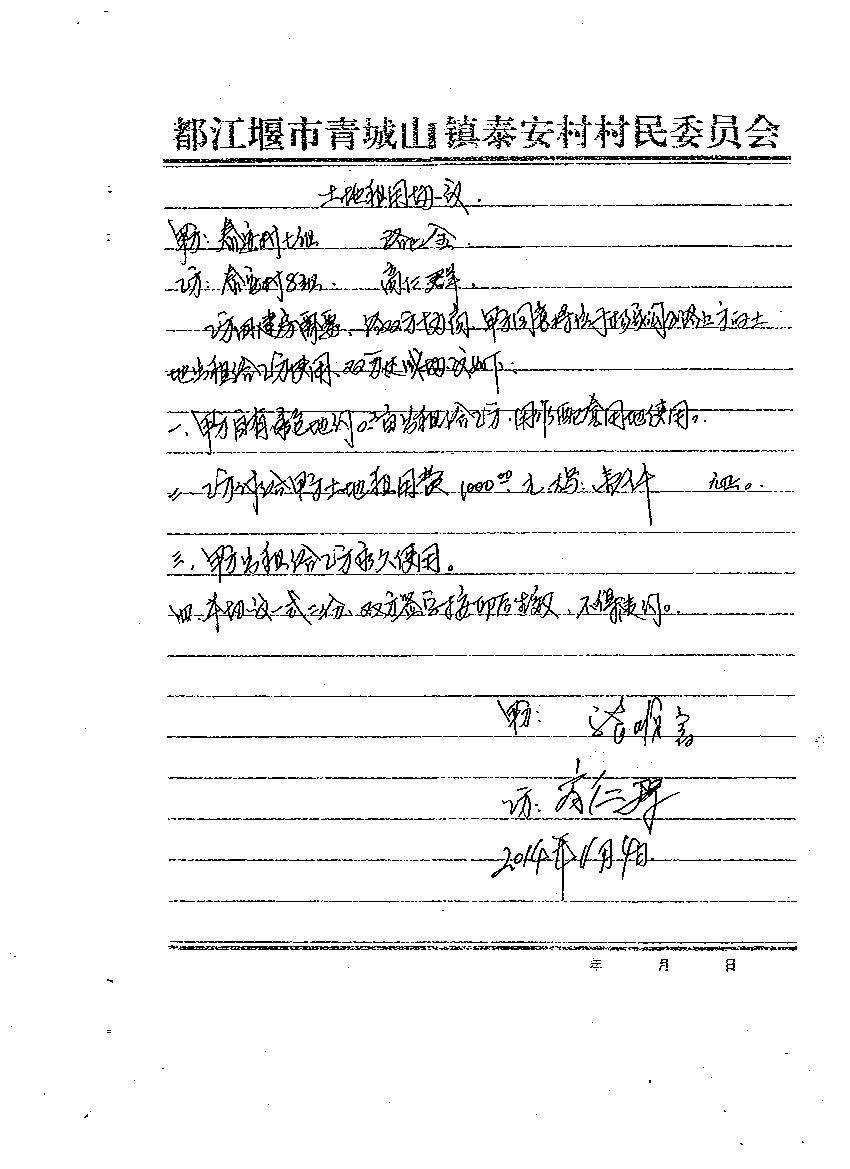 都江堰市青城山镇泰安村村民委员会
土地租用协议.
甲方: 泰安村七组
乙方: 泰安村8组. 高仁群.
乙方因建房需要, 经双方协商, 甲方同意将位于公路上方的土
地出租给乙方使用, 双方达成协议如下:
一、甲方自有承包地约0.2亩出租给乙方, 用作配套用地使用。
二、乙方付给甲方土地租用费1000.00元, 大写: 壹仟 元正。
三、甲方出租给乙方永久使用。
四、本协议一式二份, 双方签字按印后生效, 不得违约。
甲方:
乙方: 高仁群
2014年11月4日
年 月 日